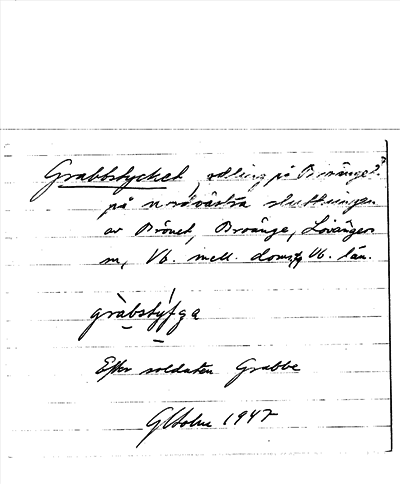 Grabbstycket, odling på Brånget?
på nordvästra sluttningen
av Brönet, Broånge, Lövångers
sn, Vb. mell. doms. Vb. län.
gràbstýfga
Efter soldaten Grabbe
GHolm 1947